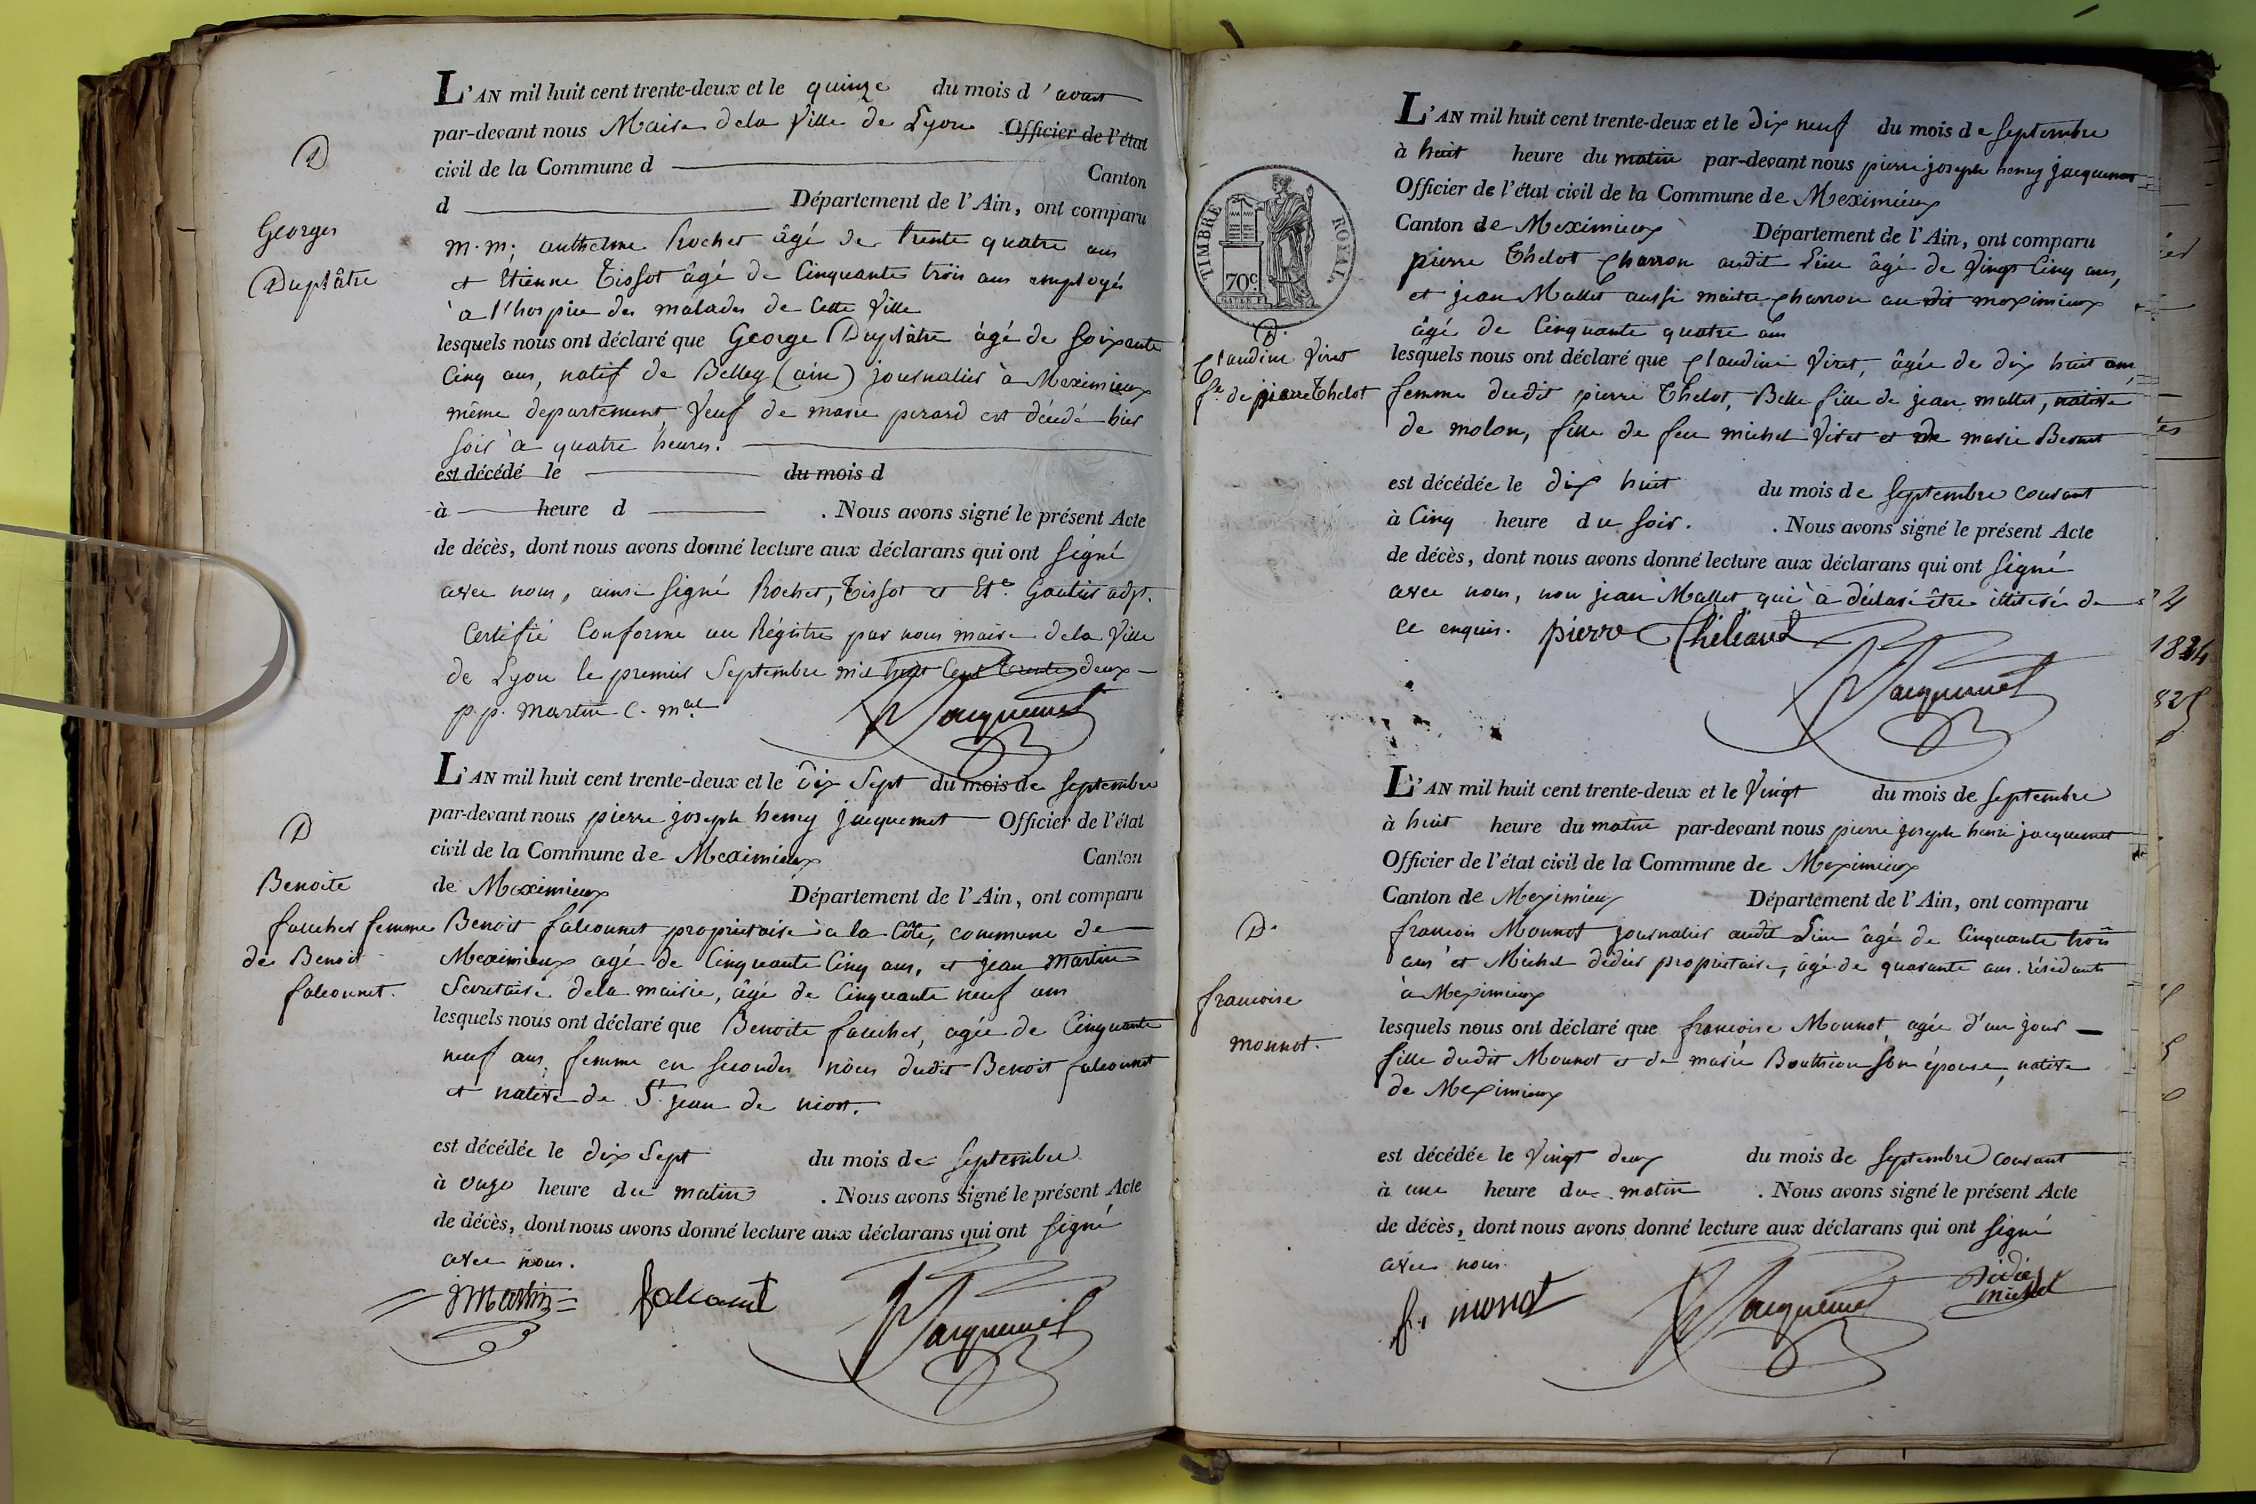 L'AN mil huit cent trente-deux et le quinze du mois d'aout
par-devant nous Maire dela Ville de Lyon Officier de l'état
civil de la Commune d Canton
d Département de l'Ain, ont comparu
m.m; anthelme Rochet âgé de trente quatre ans
et Etienne Tissot âgé de Cinquante trois ans employés
à l'hospice des malades de Cette Ville
lesquels nous ont déclaré que George Duplâtre âgé de soixante
Cinq ans, natif de Belley (ain) journalier à Meximieux
même departement, Veuf de marie perard est décédé hier
soir à quatre heures.
est décédé le du mois d
à heure d . Nous avons signé le présent Acte
de décès, dont nous avons donné lecture aux déclarans qui ont signé
avec nous, ainsi signé Rochet, Tissot et Et.e Gautier adjt.
Certifié Conforme au Régistre par nous maire dela Ville
de Lyon le premier Septembre mil huit Cent trente deux
p.p. Martin C. mal
Jacquemet
D
Georges
Duplâtre
L'AN mil huit cent trente-deux et le dix Sept du mois de Septembre
par-devant nous pierre joseph henry jacquemet Officier de l'état
civil de la Commune de Meximieux Canton
de Meximieux Département de l'Ain, ont comparu
Benoit falconnet proprietaire à la Côte, commune de
Meximieux agé de Cinquante Cinq ans, et jean Martin
Secretaire dela mairie, âgé de Cinquante neuf ans
lesquels nous ont déclaré que Benoite faucher, agée de Cinquante
neuf ans, femme en secondes nôces dudit Benoit falconnet
et native de St jean de niost.
est décédée le dix Sept du mois de Septembre
à onze heure du matin . Nous avons signé le présent Acte
de décès, dont nous avons donné lecture aux déclarans qui ont signé
avec nous.
JMartin falconnet Jacquemet
D
Benoite
faucher femme
de Benoit
falconnet.
L'AN mil huit cent trente-deux et le dix neuf du mois de Septembre
à huit heure du matin par-devant nous pierre joseph henry jacquemet
Officier de l'état civil de la Commune de Meximieux
Canton de Meximieux Département de l'Ain, ont comparu
pierre Thelot Charron audit Lieu âgé de Vingt Cinq ans,
et jean Mallet aussi maitre Charron audit meximieux
âgé de Cinquante quatre ans
lesquels nous ont déclaré que Claudine Viret, âgée de dix huit ans,
femme dudit pierre Thelot, Belle fille de jean mallet, native
de molon, fille de feu michel Viret et de marie Bernet
est décédée le dix huit du mois de Septembre courant
à Cinq heure du soir. . Nous avons signé le présent Acte
de décès, dont nous avons donné lecture aux déclarans qui ont signé
avec nous, non jean Mallet qui à déclaré être illitéré de
ce enquis. pierre
Jacquemet
TIMBRE ROYAL
70c
D.
Claudine Viret
fe de pierre Thelot
L'AN mil huit cent trente-deux et le Vingt du mois de Septembre
à huit heure du matin par-devant nous pierre joseph henri jacquemet
Officier de l'état civil de la Commune de Meximieux
Canton de Meximieux Département de l'Ain, ont comparu
francois Monnot journalier audit Lieu âgé de Cinquante trois
ans et Michel didier proprietaire, âgé de quarante ans. résidants
à Meximieux
lesquels nous ont déclaré que francoise Monnot, agée d'un jour
fille dudit Monnot et de marie Bouthieon son épouse, native
de Meximieux
est décédée le Vingt deux du mois de Septembre courant
à une heure du matin . Nous avons signé le présent Acte
de décès, dont nous avons donné lecture aux déclarans qui ont signé
avec nous.
f. monot Jacquemet Didier
michel
D.
francoise
monnot.